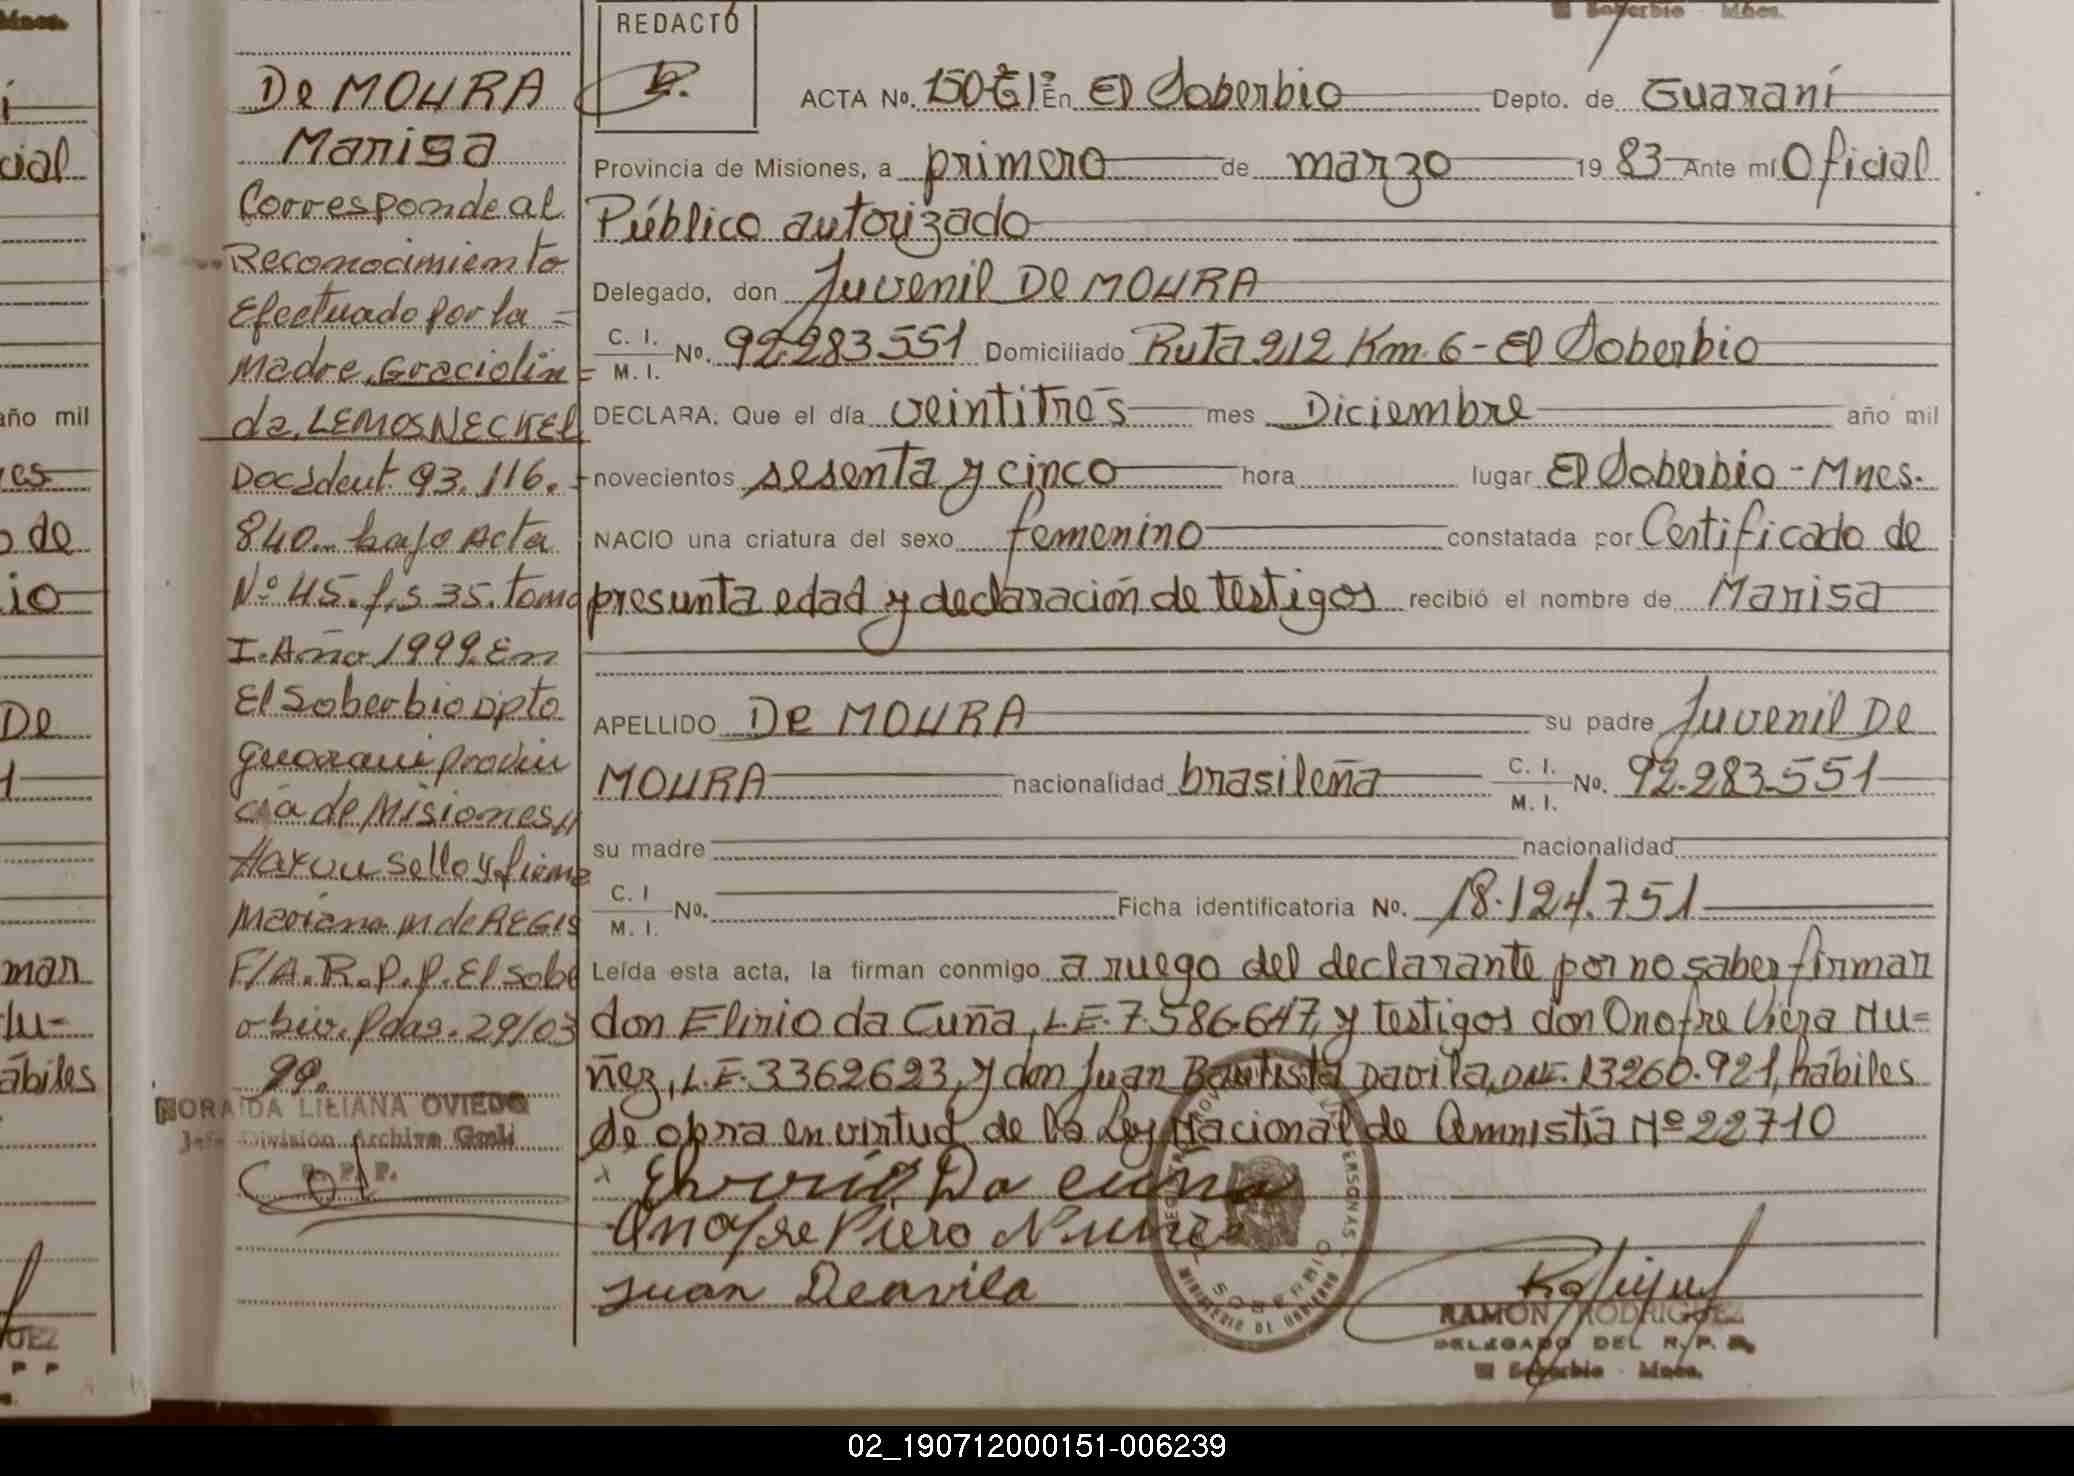 Mnes.
El Soberbio - Mnes.
De MOURA
Marisa
Corresponde al
Reconocimiento
Efectuado por la =
Madre, Graciolin =
da, LEMOS NECKEL
Doc Ident 93.116. =
840... bajo Acta
Nº 45. f,s 35. tomo
I. Año 1999. En
El Soberbio Dpto
Guarani provin
cia de Misiones,,
sello y firma
Mariana M de REGIS
F/A. R. P. P. El sobe
Pdas. 29/03
99.
NORAIDA LILIANA OVIEDO
Jefe División Archivo Gral.
R. P. P.
REDACTÓ
ACTA No. 150-Tº1º En El Soberbio Depto. de Guaraní
Provincia de Misiones, a primero de marzo 19 83 Ante mí Oficial
Público autorizado
Delegado, don Juvenil De MOURA
C. I.
M. I. No. 92.283.551 Domiciliado Ruta 212 Km. 6 - El Soberbio
DECLARA: Que el día veintitrés mes Diciembre año mil
novecientos sesenta y cinco hora lugar El Soberbio - Mnes.
NACIO una criatura del sexo femenino constatada por Certificado de
presunta edad y declaración de testigos recibió el nombre de Marisa
APELLIDO De MOURA su padre Juvenil De
MOURA nacionalidad brasileña C. I.
M. I. No. 92.283.551
su madre nacionalidad
C. I
M. I. No. Ficha identificatoria No. 18.124.751
Leída esta acta, la firman conmigo a ruego del declarante por no saber firmar
don Elirio da Cuña, L.E. 7.586.647, y testigos don Onofre Viera Nu=
ñez, L.E. 3362623, y don Juan Bautista Davila, DNI. 13260.921, hábiles
de obra en virtud de la Ley Nacional de Amnistía Nº 22710
Da cunha
Onofre Viero Nunes
Juan Deavila
REGISTRO PROVINCIAL DE LAS PERSONAS
EL SOBERBIO
MINISTERIO DE GOBIERNO
RAMON RODRIGUEZ
DELEGADO DEL R. P. P.
El Soberbio - Mnes.
cial
año mil
de
io
De
mar
Nu-
ábiles
UEZ
P P
02_190712000151-006239